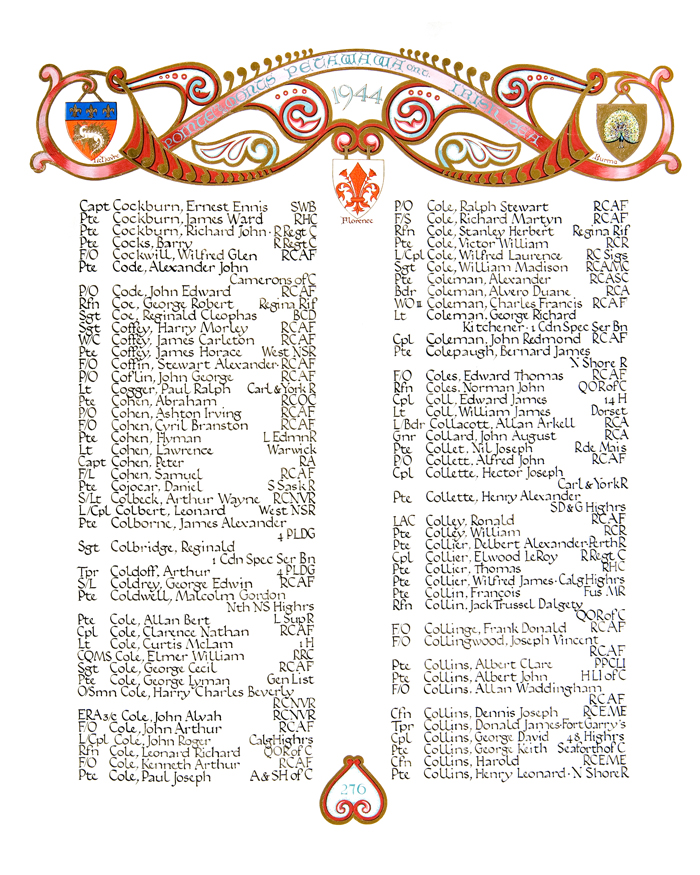 POINTE AUX MONTS PETAWAWA cont. IRISH SEA
1944
Burma
Florence
Capt Cockburn, Ernest Ennis SWB
Pte Cockburn, James Ward RHC
Pte Cockburn, Richard John · R Regt C
Pte Cocks, Barry R Regt C
F/O Cockwill, Wilfred Glen RCAF
Pte Code, Alexander John
Camerons of C
P/O Code, John Edward RCAF
Rfn Coe, George Robert Regina Rif
Sgt Coe, Reginald Cleophas BCD
Sgt Coffey, Harry Morley RCAF
W/C Coffey, James Carleton RCAF
Pte Coffey, James Horace West NSR
F/O Coffin, Stewart Alexander · RCAF
P/O Coflin, John George RCAF
Lt Cogger, Paul Ralph Carl & York R
Pte Cohen, Abraham RCOC
P/O Cohen, Ashton Irving RCAF
F/O Cohen, Cyril Branston RCAF
Pte Cohen, Hyman L EdmnR
Lt Cohen, Lawrence Warwick
Capt Cohen, Peter RA
F/L Cohen, Samuel RCAF
Pte Cojocar, Daniel S Sask R
S/Lt Colbeck, Arthur Wayne RCNVR
L/Cpl Colbert, Leonard West NSR
Pte Colborne, James Alexander
4 PLDG
Sgt Colbridge, Reginald
1 Cdn Spec Ser Bn
Tpr Coldoff, Arthur 4 PLDG
S/L Coldrey, George Edwin RCAF
Pte Coldwell, Malcolm Gordon
Nth NS Highrs
Pte Cole, Allan Bert L Sup R
Cpl Cole, Clarence Nathan RCAF
Lt Cole, Curtis McLam 1 H
CQMS Cole, Elmer William RRC
Sgt Cole, George Cecil RCAF
Pte Cole, George Lyman Gen List
O/Smn Cole, Harry Charles Beverly
RCNVR
ERA 3/c Cole, John Alvah RCNVR
F/O Cole, John Arthur RCAF
L/Cpl Cole, John Roger Calg Highrs
Rfn Cole, Leonard Richard QOR of C
F/O Cole, Kenneth Arthur RCAF
Pte Cole, Paul Joseph A & SH of C
P/O Cole, Ralph Stewart RCAF
F/S Cole, Richard Martyn RCAF
Rfn Cole, Stanley Herbert Regina Rif
Pte Cole, Victor William RCR
L/Cpl Cole, Wilfred Laurence RC Sigs
Sgt Cole, William Madison RCAMC
Pte Coleman, Alexander RCASC
Bdr Coleman, Alvero Duane RCA
WO II Coleman, Charles Francis RCAF
Lt Coleman, George Richard
Kitchener · 1 Cdn Spec Ser Bn
Cpl Coleman, John Redmond RCAF
Pte Colepaugh, Bernard James
N Shore R
F/O Coles, Edward Thomas RCAF
Rfn Coles, Norman John QOR of C
Cpl Coll, Edward James 14 H
Lt Coll, William James Dorset
L/Bdr Collacott, Allan Arkell RCA
Gnr Collard, John August RCA
Pte Collet, Nil Joseph R de Mais
P/O Collett, Alfred John RCAF
Cpl Collette, Hector Joseph
Carl & York R
Pte Collette, Henry Alexander
SD & G Highrs
LAC Colley, Ronald RCAF
Pte Colley, William RCR
Pte Collier, Delbert Alexander · Perth R
Cpl Collier, Elwood LeRoy R Regt C
Pte Collier, Thomas RHC
Pte Collier, Wilfred James · Calg Highrs
Pte Collin, François Fus MR
Rfn Collin, Jack Trussel Dalgety
QOR of C
F/O Collinge, Frank Donald RCAF
F/O Collingwood, Joseph Vincent
RCAF
Pte Collins, Albert Clare PPCLI
Pte Collins, Albert John HLI of C
F/O Collins, Allan Waddingham
RCAF
Cfn Collins, Dennis Joseph RCEME
Tpr Collins, Donald James · Fort Garry's
Cpl Collins, George David 48 Highrs
Pte Collins, George Keith Seaforth of C
Cfn Collins, Harold RCEME
Pte Collins, Henry Leonard · N Shore R
276